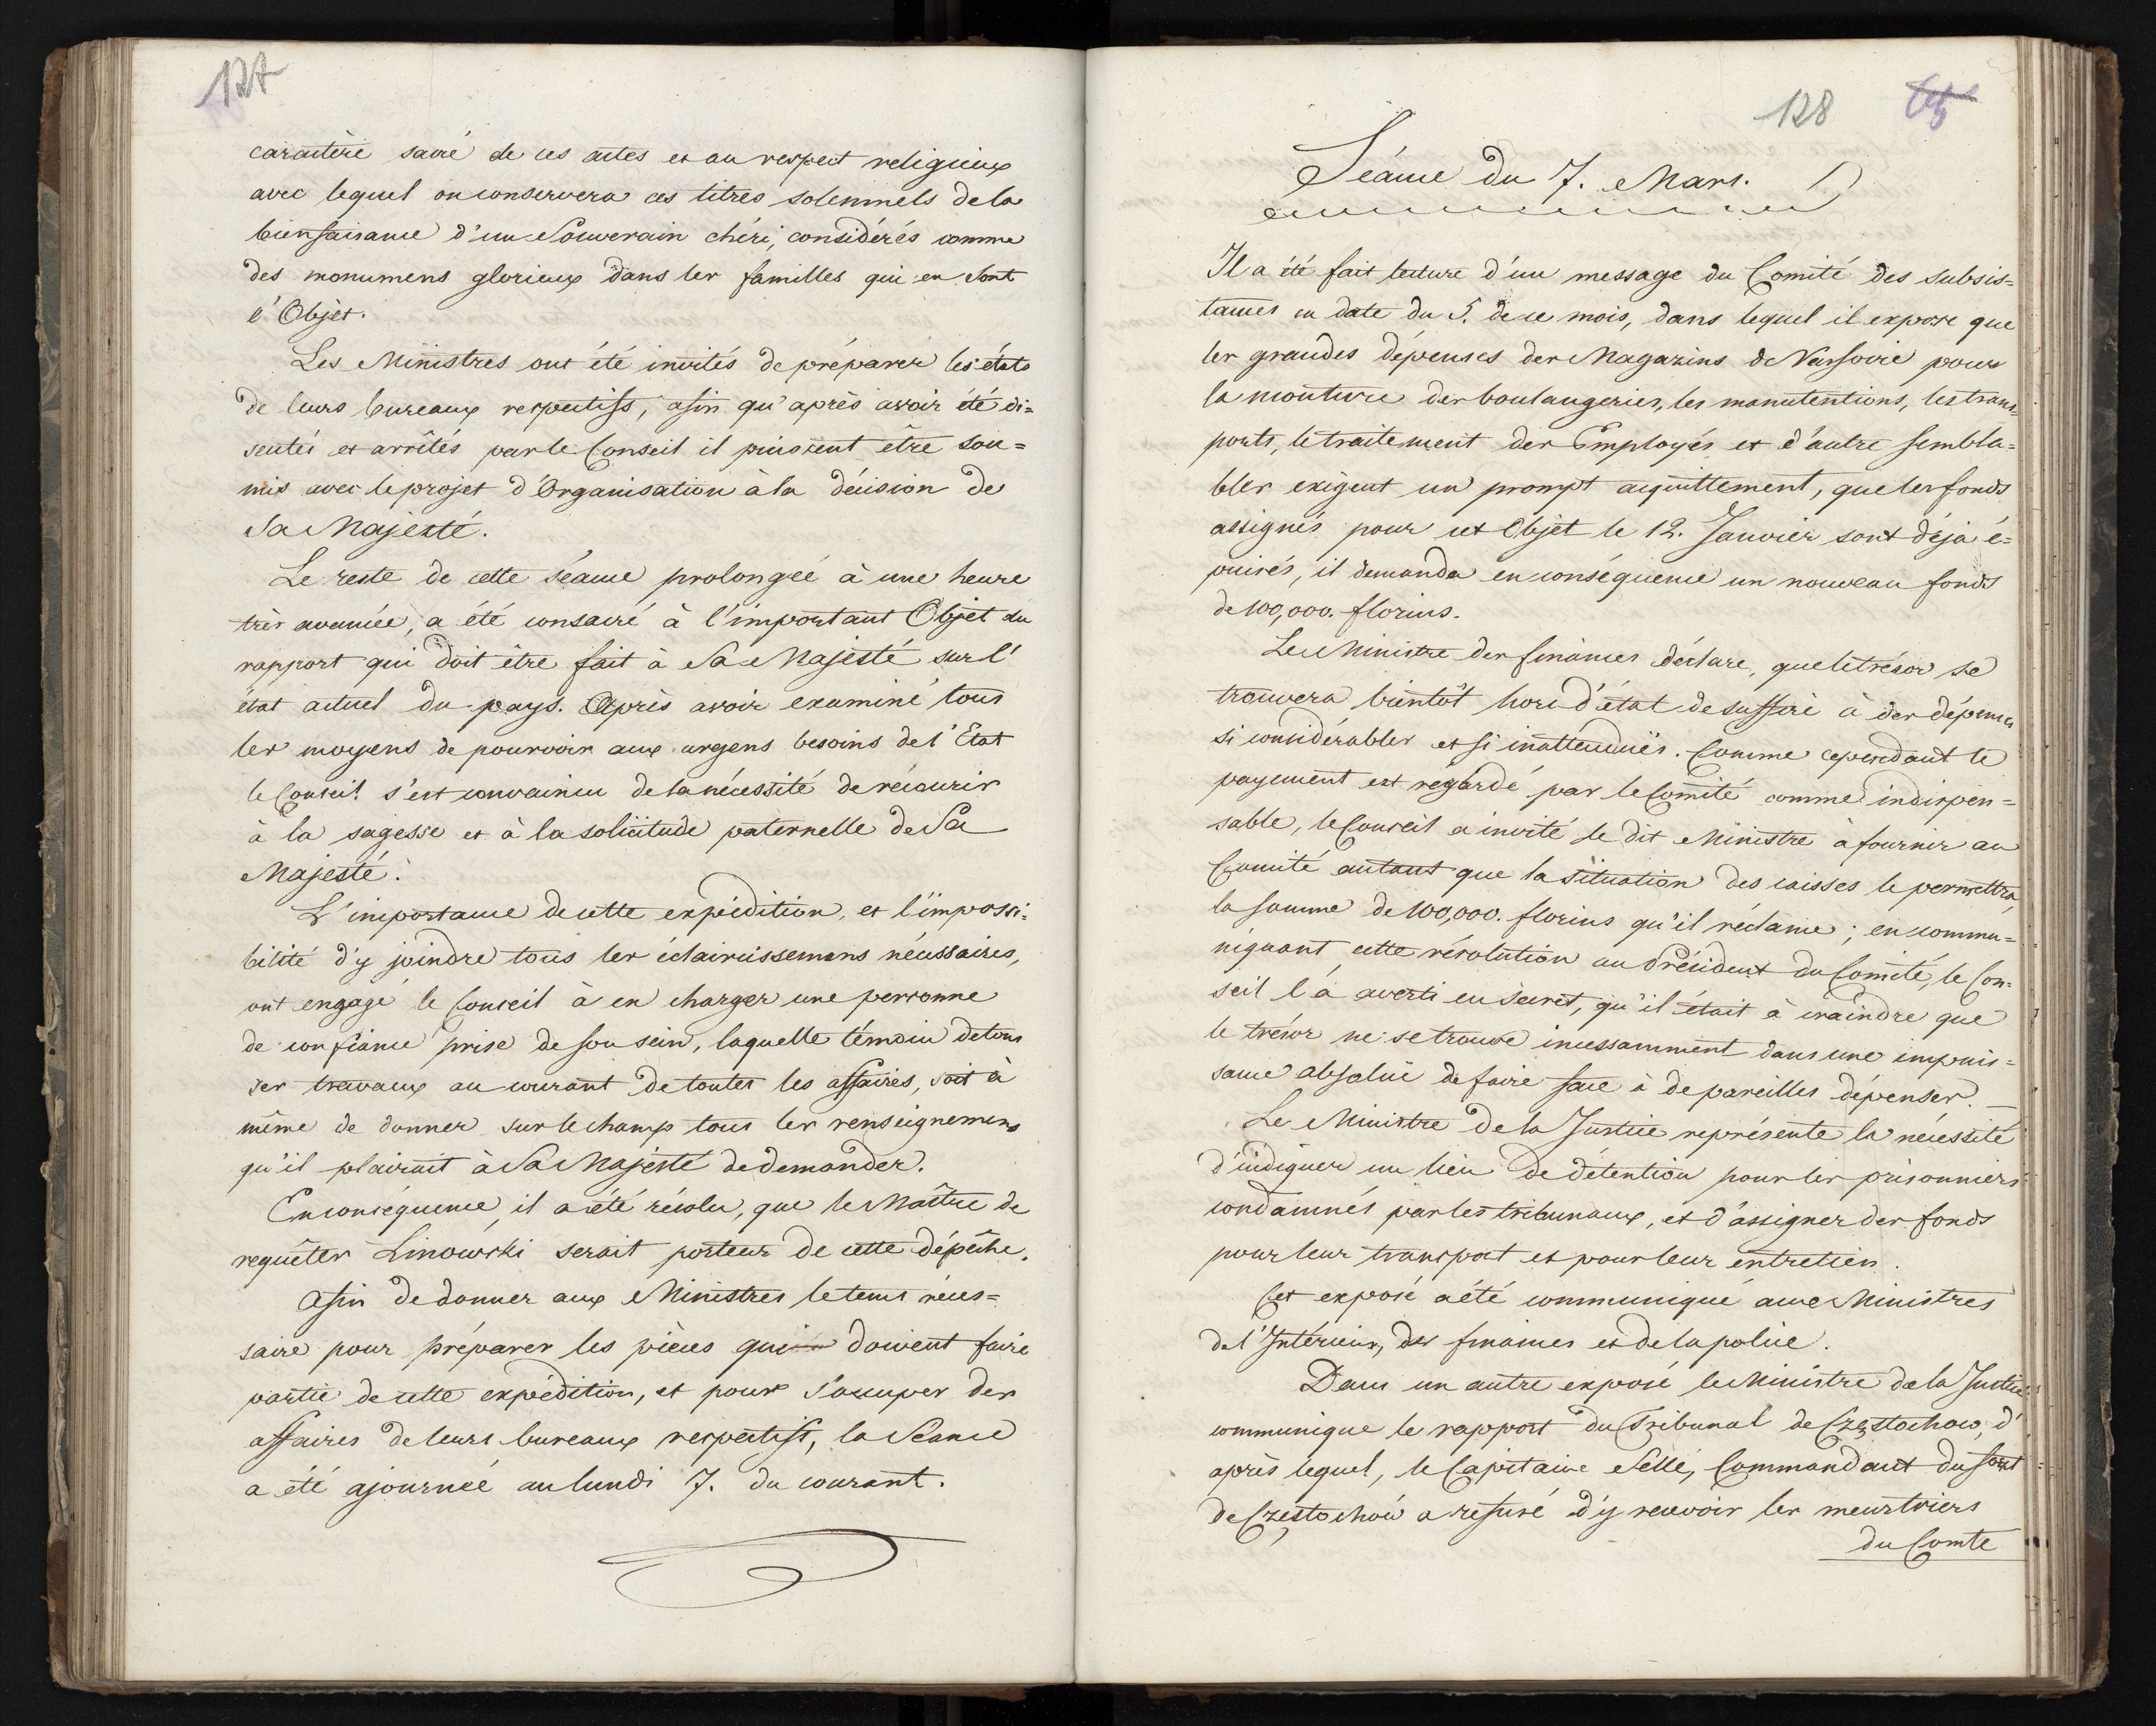 127
caractère sacré de ces actes et au respect religieux
avec lequel on conservera ces titres solemnels de la
bienfaisance d'un Souverain chéri, considérés comme
des monumens glorieux dans les familles qui en sont
l'Objet.
Les Ministres ont été invités de préparer les états
de leurs bureaux respectifs, afin qu'après avoir été di=
scutés et arrêtés par le Conseil il puissent être sou=
mis avec le projet d'Organisation à la décision de
Sa Majesté.
Le reste de cette séance prolongée à une heure
très avancée, a été consacré à l'important Objet du
rapport qui doit être fait à Sa Majesté sur l'
état actuel du pays. Après avoir examiné tous
les moyens de pourvoir aux urgens besoins de l'Etat
le Conseil s'est convaincu de la nécessité de récourir
à la sagesse et à la sollicitude paternelle de Sa
Majesté.
L'importance de cette expédition, et l'impossi=
bilité d'y joindre tous les éclaircissemens nécessaires,
ont engagé le Conseil à en charger une personne
de confiance prise de son sein, laquelle témoin de tous
ses travaux au courant de toutes les affaires, soit à
même de donner sur le champ tous les renseignemens
qu'il plairait à Sa Majesté de demander.
En conséquence, il a été résolu, que le Maître de
requêtes Linowski serait porteur de cette dépêche.
Afin de donner aux Ministres le tems néces=
saire pour préparer les pièces qui doivent faire
partie de cette expédition, et pour s'occuper des
affaires de leurs bureaux respectifs, la Séance
a été ajournée au lundi 7. du courant.
128
Séance du 7. Mars.
Il a été fait lecture d'un message du Comité des subsis=
tances en date du 5. de ce mois, dans lequel il expose que
les grandes dépenses des Magazins de Varsovie pour
la mouture des boulangeries, les manutentions, les trans=
ports, le traitement des Employés et d'autre sembla=
bles exigent un prompt acquittement, que les fonds
assignés pour cet Objet le 12. Janvier sont déja é=
puisés, il demanda en conséquence un nouveau fonds
de 100,000. florins.
Le Ministre des finances déclare, que le trésor se
trouvera bientôt hors d'état de suffire à des dépenses
si considérables et si inattendues. Comme cependant le
payement est régardé par le Comité comme indispen=
sable, le Conseil a invité le dit Ministre à fournir au
Comité autant que la situation des caisses le permettra,
la somme de 100,000. florins qu'il réclame; en commu=
niquant cette résolution au Président du Comité, le Con=
seil l'a averti en secret, qu'il était à craindre que
le trésor ne se trouve incessamment dans une impuis=
sance absolue de faire face à de pareilles dépenses.
Le Ministre de la Justice représente la nécessité
d'indiquer un lieu de détention pour les prisonniers
condamnés par les tribunaux, et d'assigner des fonds
pour leur transport et pour leur entretien.
Cet exposé a été communiqué aux Ministres
de l'Intérieur, des finances et de la police.
Dans un autre exposé le Ministre de la Justice
communique le rapport du Tribunal de Częstochow, d'
après lequel, le Capitaine Sellé, Commandant du fort
de Częstochow a refusé d'y recevoir les meurtriers
du Comte